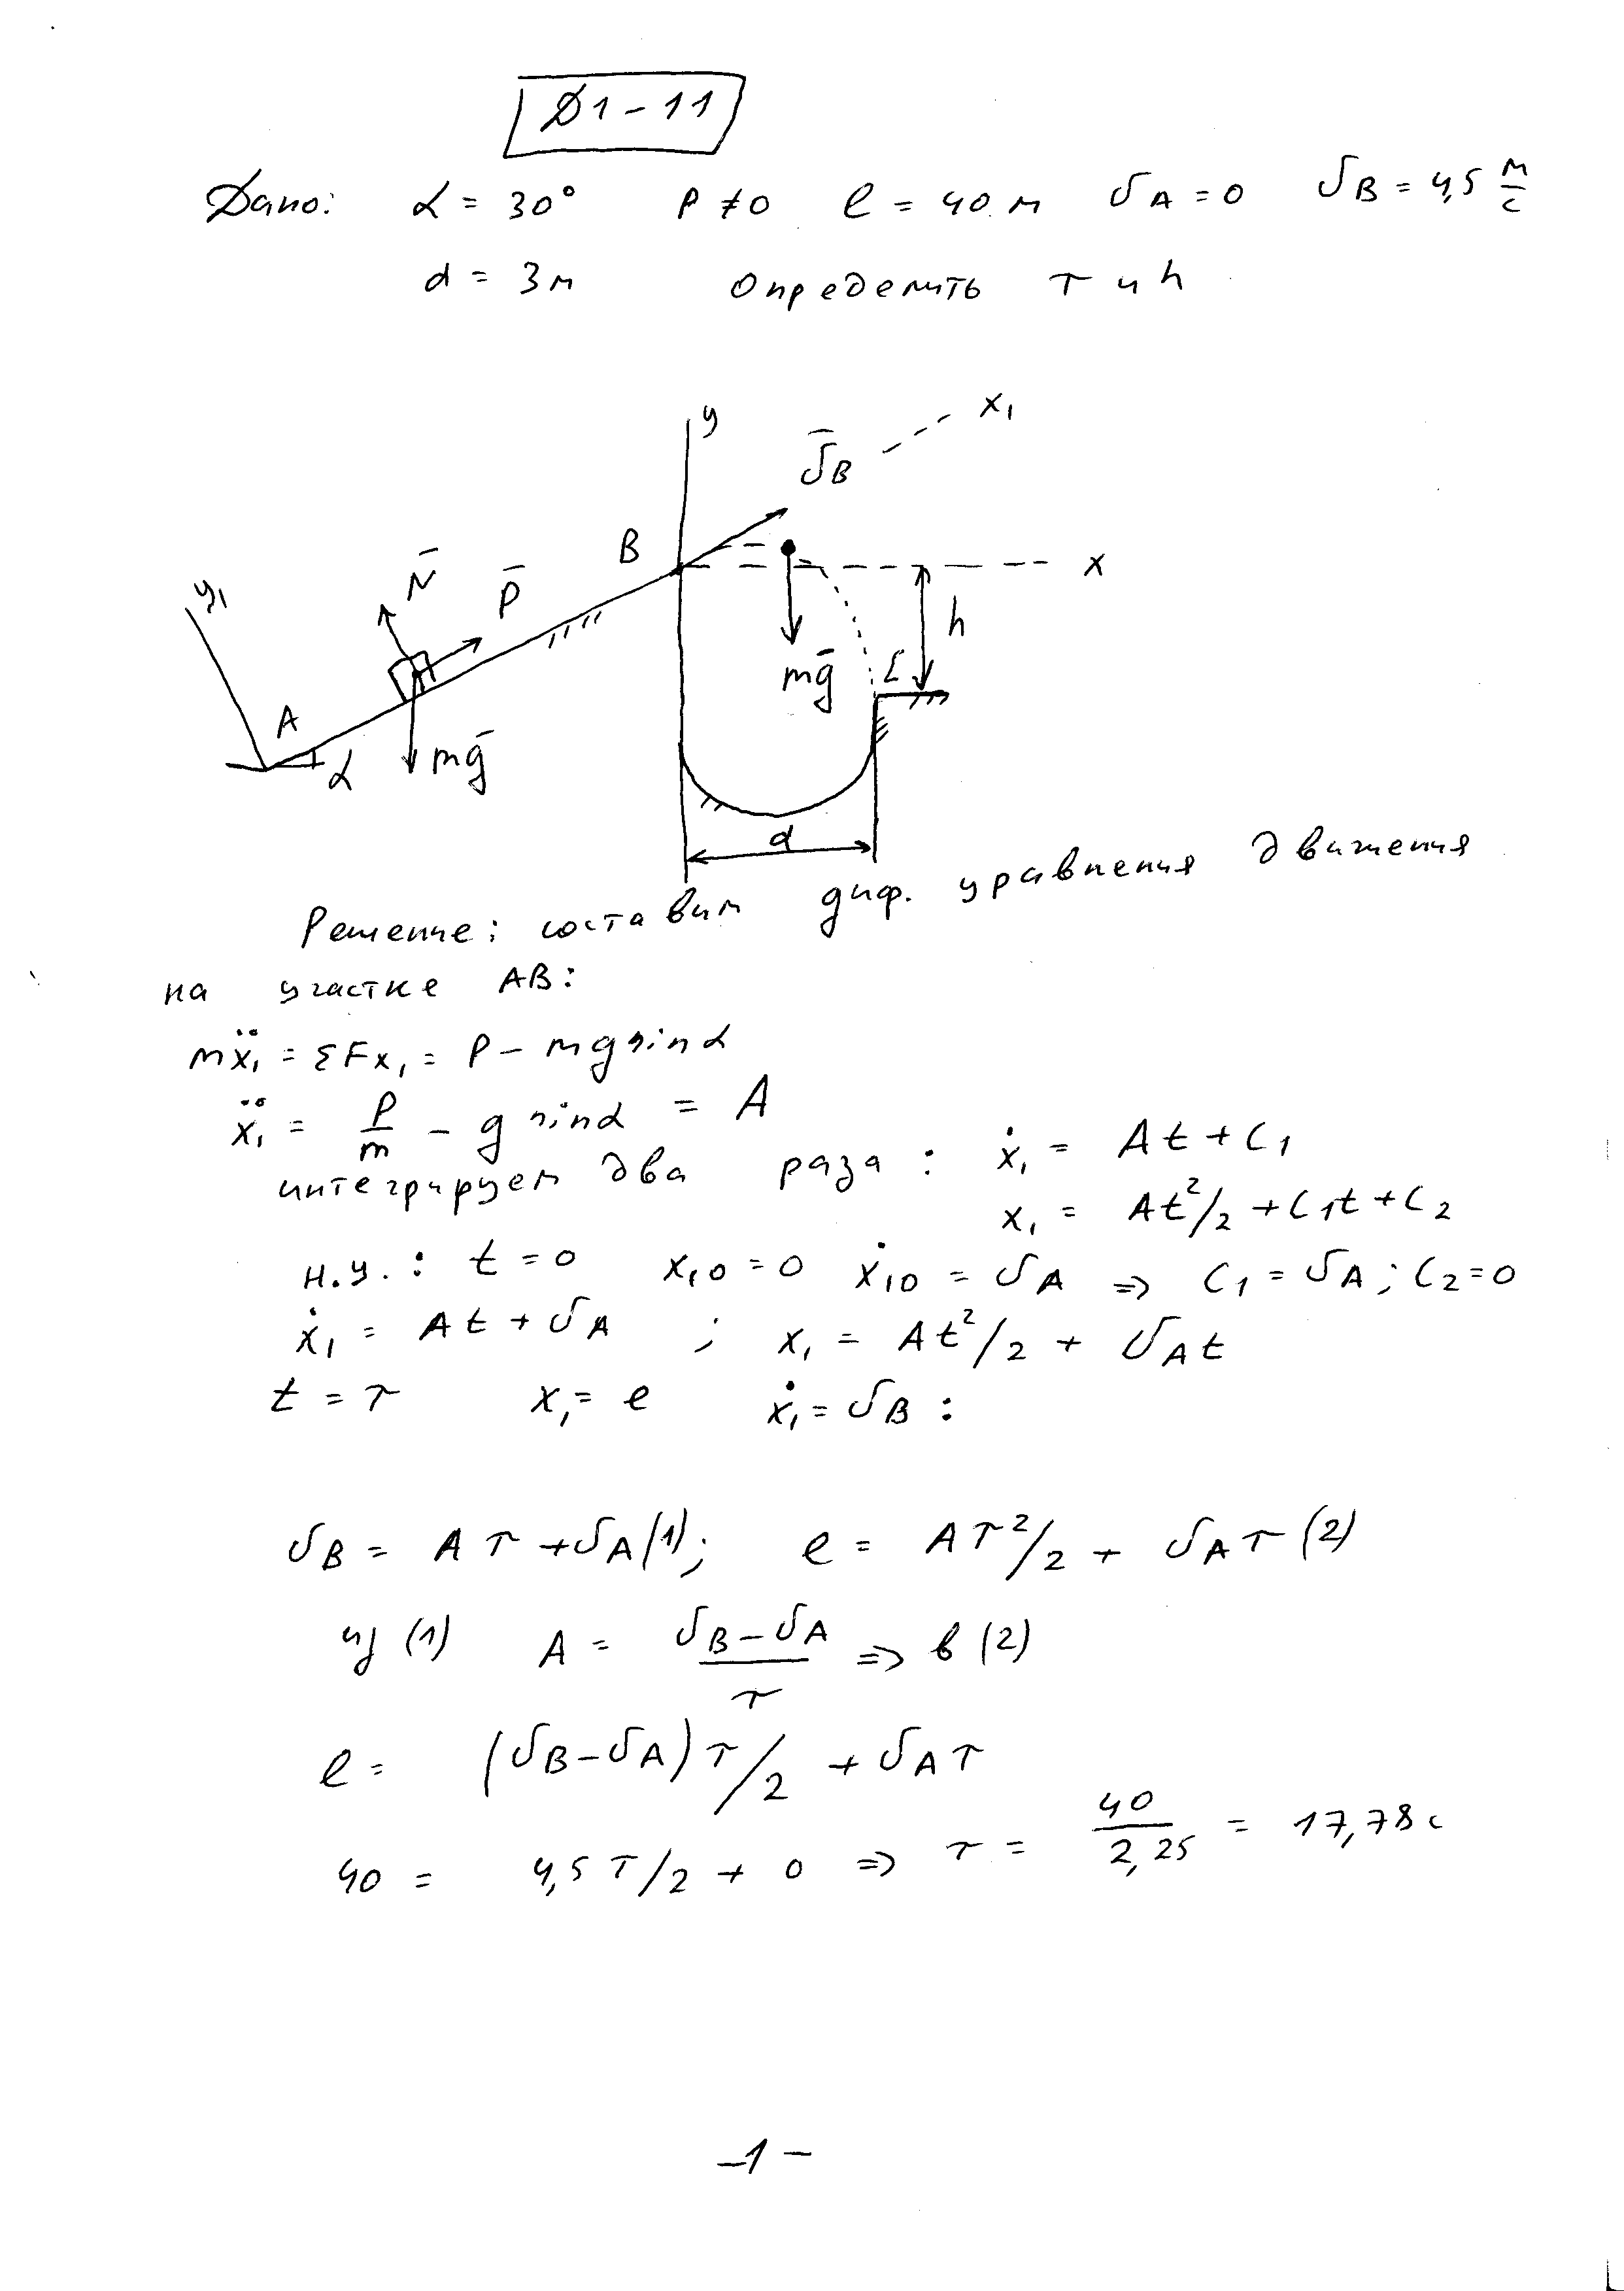 Д1-11
Дано: α = 30° P ≠ 0 l = 40 м υA = 0 υB = 4,5 м/с
d = 3м Определить τ и h
y
x₁
υ̅B
B
x
N̅
P̅
y₁
h
mg̅
C
A
α
mg̅
d
Решение: составим диф. уравнения движения
на участке AB:
mẍ₁ = ΣFx₁ = P - mg sinα
ẍ₁ = P/m - g sinα = A
интегрируем два раза: ẋ₁ = At + C₁
x₁ = At²/2 + C₁t + C₂
н.у.: t = 0 x₁₀ = 0 ẋ₁₀ = υA => C₁ = υA; C₂ = 0
ẋ₁ = At + υA ; x₁ = At²/2 + υAt
t = τ x₁ = l ẋ₁ = υB :
υB = Aτ + υA (1); l = Aτ²/2 + υAτ (2)
из (1) A = (υB - υA)/τ => в (2)
l = (υB - υA)τ/2 + υAτ
40 = 4,5τ/2 + 0 => τ = 40/2,25 = 17,78 с
-1-